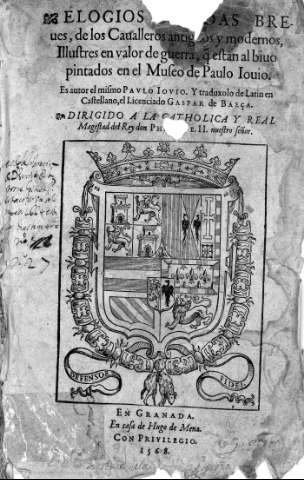 ELOGIOS DAS BRE-
ues, de los Caualleros antiguos y modernos,
Illustres en valor de guerra, q̃ están al biuo
pintados en el Museo de Paulo Iouio.
Es autor el mismo PAVLO IOVIO. Y traduxolo de Latin en
Castellano, el Licenciado GASPAR de BAEÇA.
DIRIGIDO A LA CATHOLICA Y REAL
Magestad del Rey don PH E. II. nuestro señor.
DEFENSOR
FIDEI.
EN GRANADA.
En casa de Hugo de Mena.
CON PRIVILEGIO.
1568.